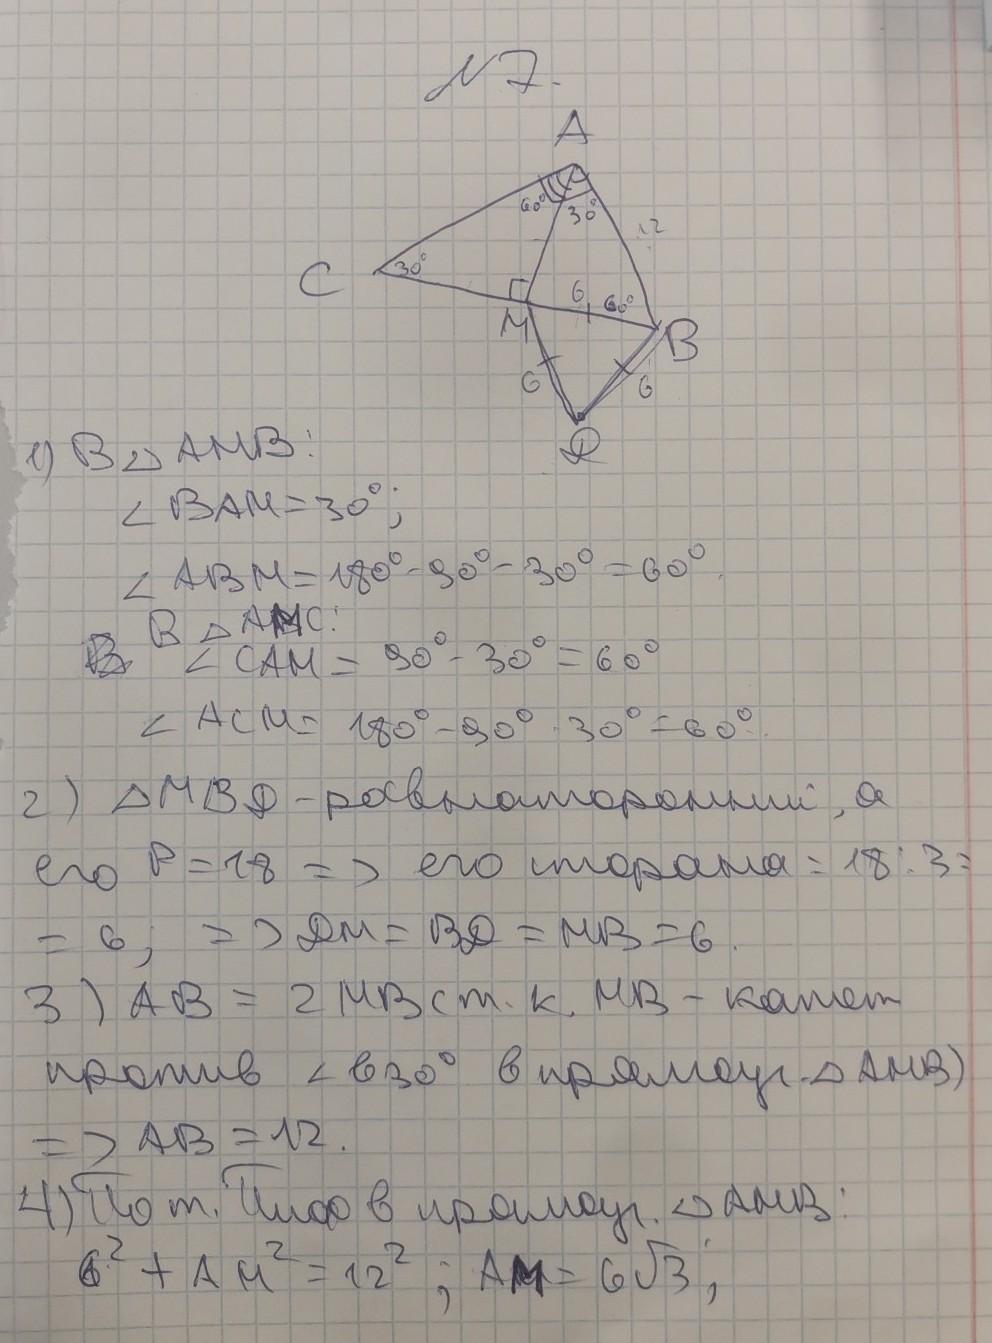 N 7.
A
60° 30°
12
C 30°
6 60°
M B
6 6
D
1) В △ AMB:
∠ BAM = 30°;
∠ ABM = 180° - 90° - 30° = 60°.
В △ AMC:
∠ CAM = 90° - 30° = 60°
∠ ACM = 180° - 90° · 30° = 60°.
2) △ MBD - равносторонний, а
его P = 18 => его сторона = 18 : 3 =
= 6; => DM = BD = MB = 6.
3) AB = 2 MB (т. к. MB - катет
против ∠ в 30° в прямоуг. △ AMB)
=> AB = 12.
4) По т. Пифа в прямоуг. △ AMB:
6² + AM² = 12²; AM = 6√3;